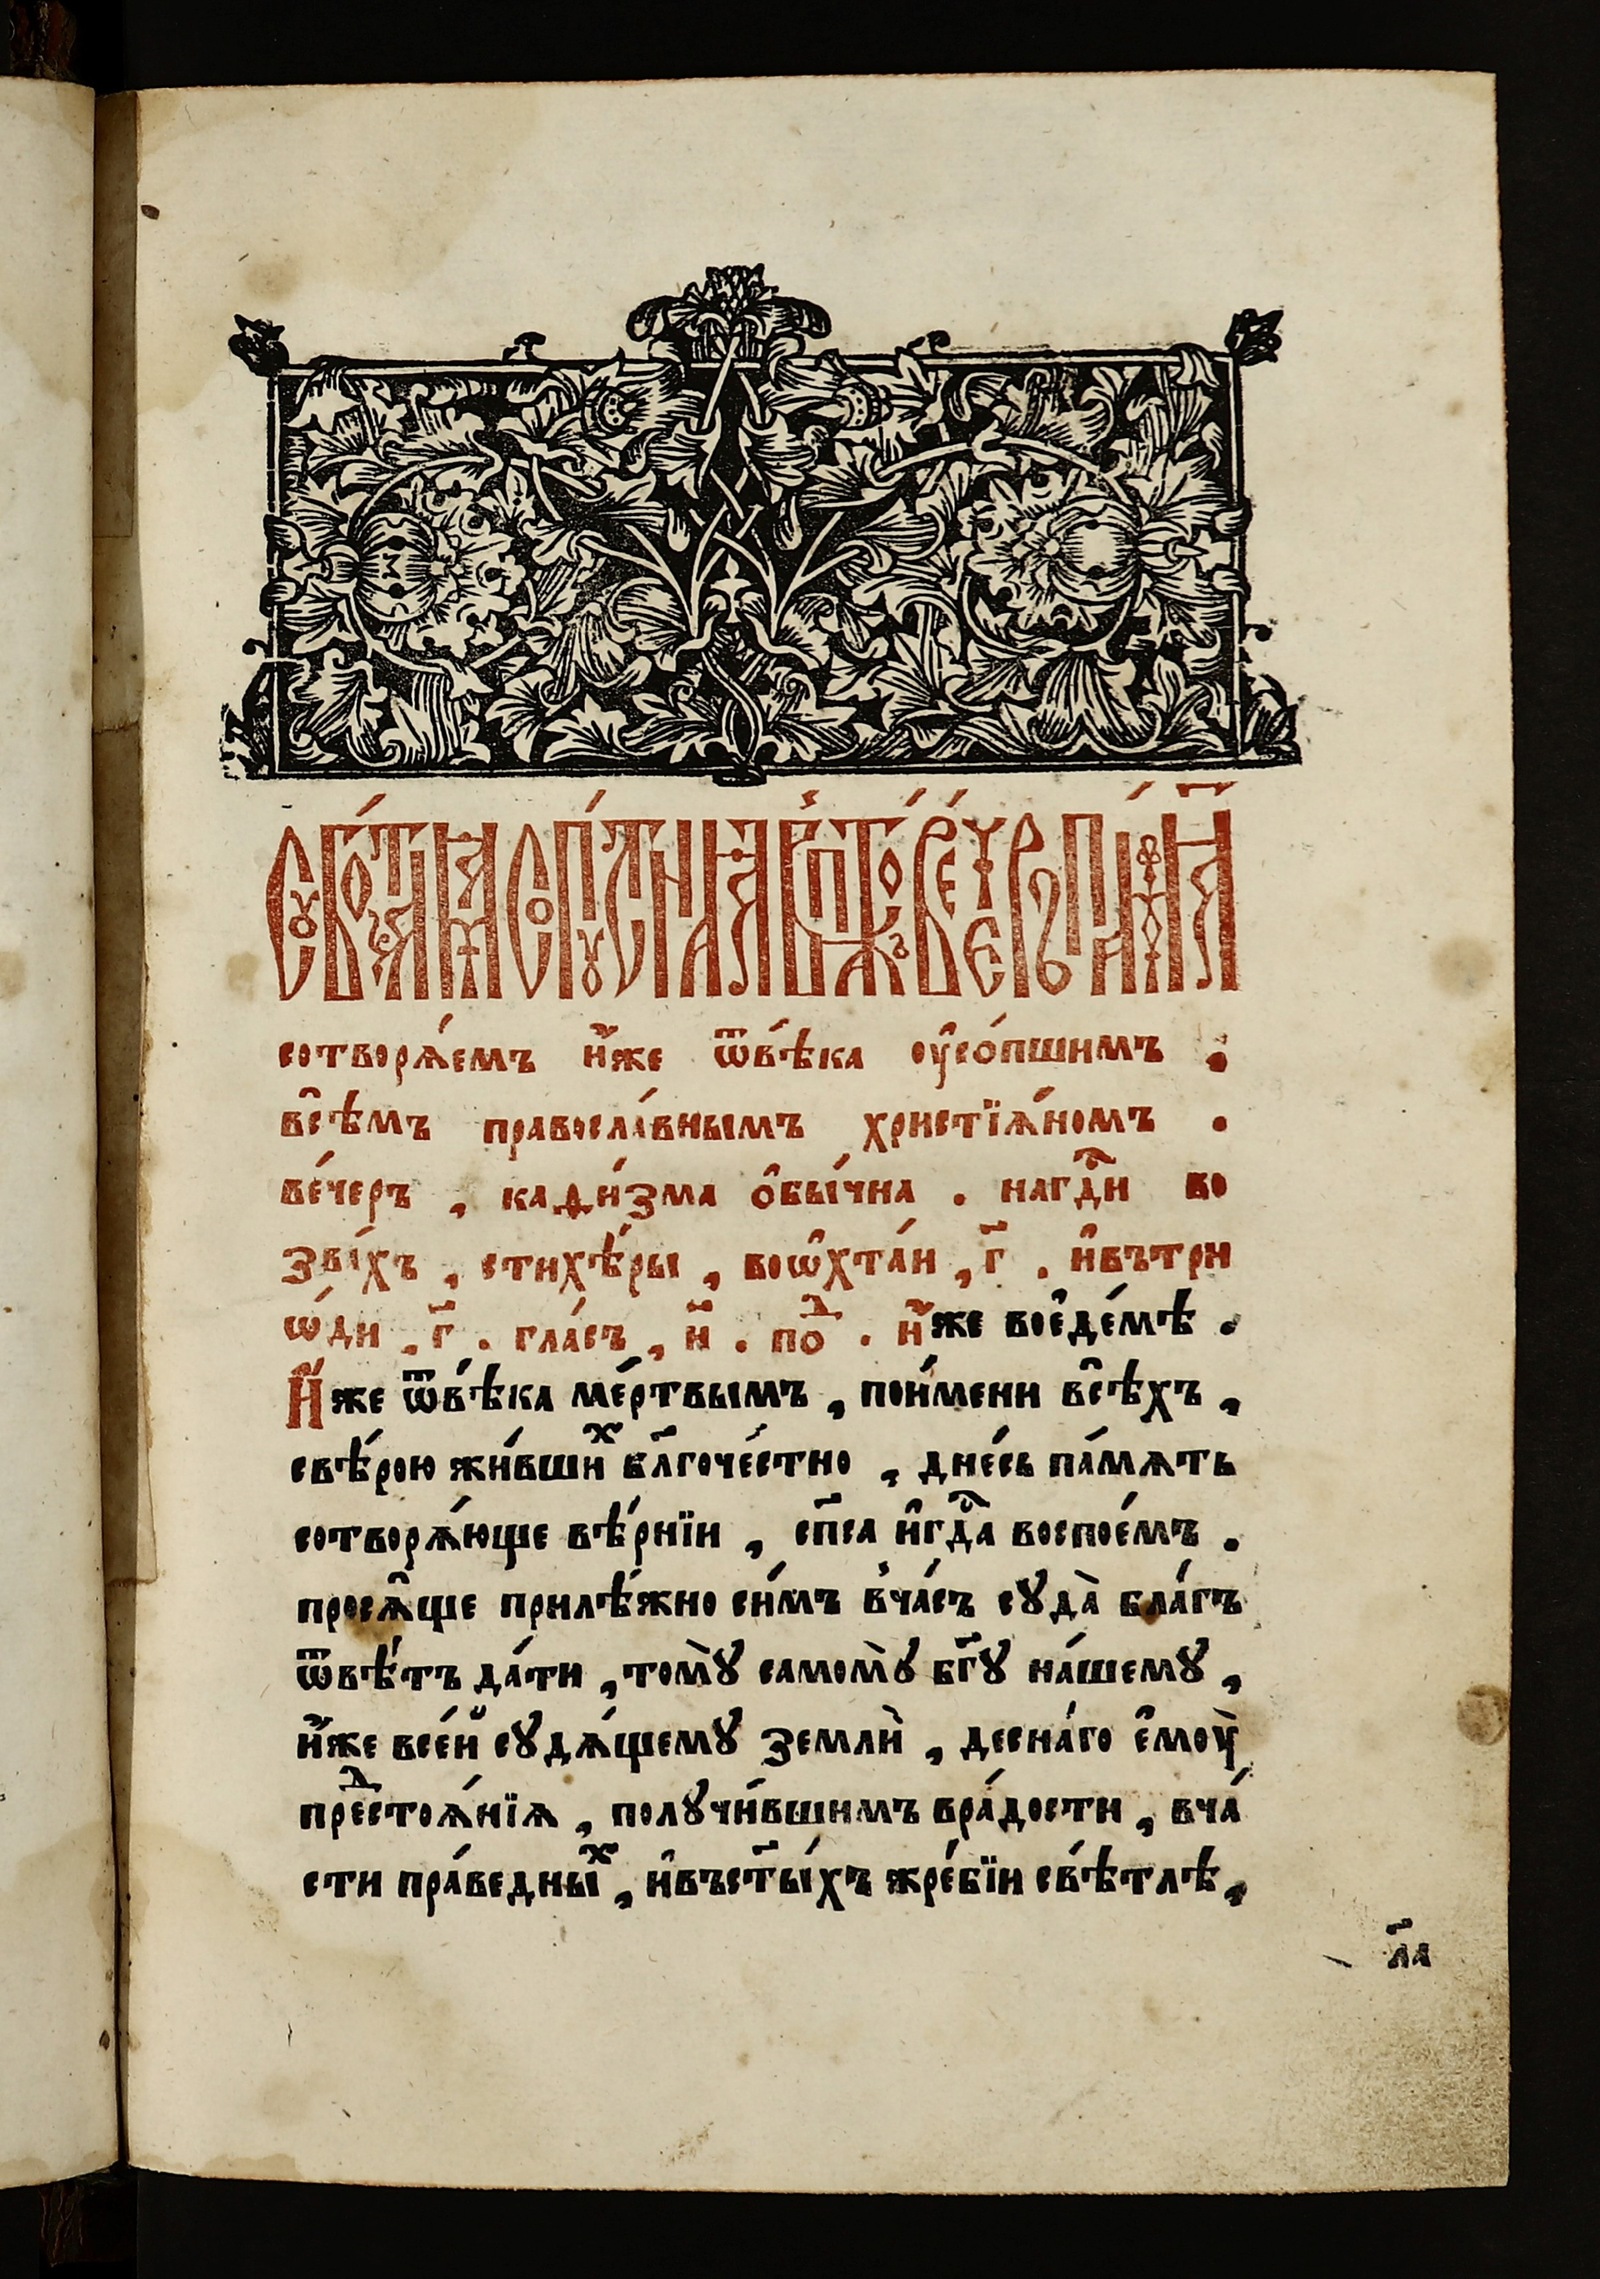 сотворѧ́емъ и҆̀же ѿвѣ́ка оу҆со́пшимъ .
в҆сѣ́мъ правосла́внымъ христїѧ́номъ .
ве́черъ , каѳи́зма о҆бы́чна . нагдⷭ҇и во
зва́хъ , стихѣ́ры , воѡ҆хта́и , г҃ . и҆въ три
ѡ́ди , г҃ . гла́съ , и҃ . поⷣ . и҆̀же вое҆де́мѣ .
И҆̀же ѿвѣ́ка ме́ртвымъ , пои́мени в҆сѣ́хъ ,
свѣ́рою жи́вшиⷯ бл҃гоче́стно , дне́сь па́мѧть
сотворѧ́юще вѣ́рнїи , сп҃са и҆гдⷭ҇а воспое́мъ .
просѧ҆ще прилѣ́жно си́мъ в҆ча́съ сꙋда̀ бла́гъ
ѿвѣ́тъ да́ти , томꙋ̀ самомꙋ̀ бг҃ꙋ на́шемꙋ ,
и҆̀же все́й сꙋдѧ́щемꙋ земли̇̀ , десна́го е҆моу̀
преⷣстоѧ́нїѧ , полꙋчи́вшимъ вра́дости , вча́
сти пра́ведныⷯ , и҆въст҃ы́хъ жре́бїи свѣ́тлѣ ,
л҃а